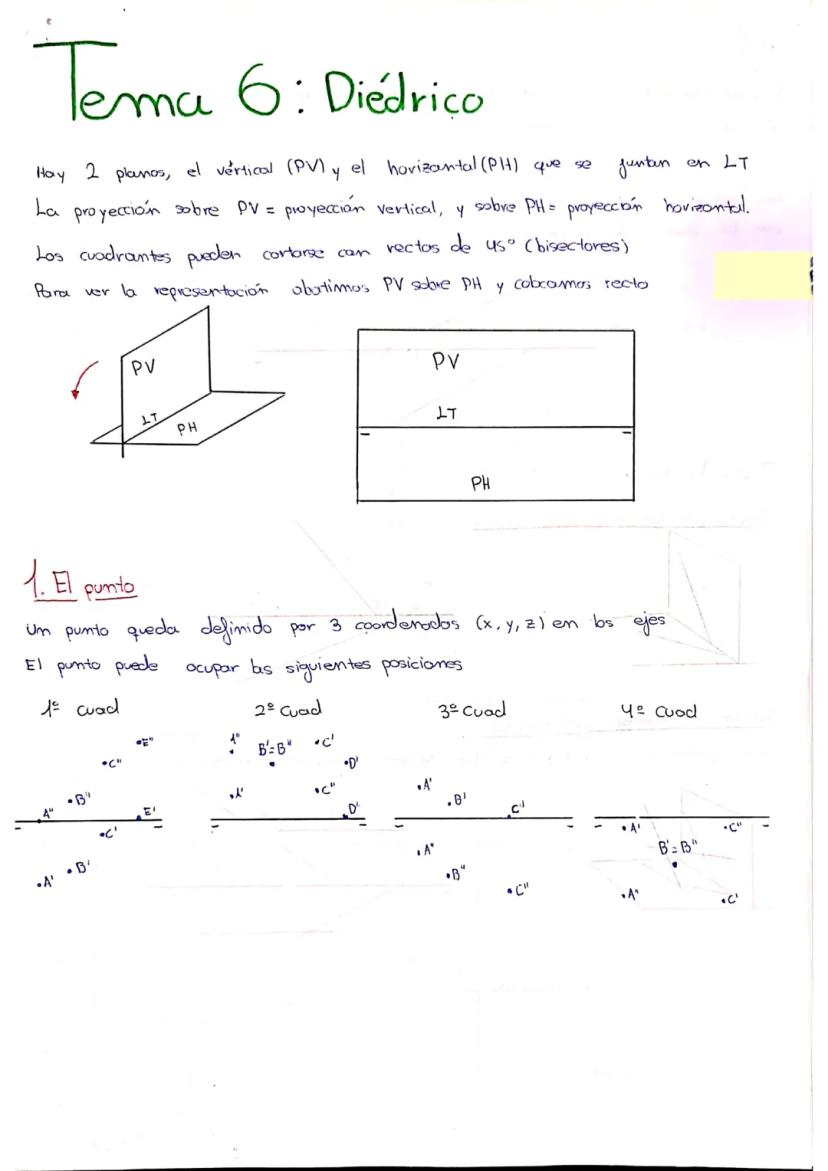 Tema 6: Diédrico
Hay 2 planos, el vértical (PV) y el horizontal (PH) que se juntan en LT
La proyección sobre PV = proyección vertical, y sobre PH = proyección horizontal.
Los cuadrantes pueden cortarse con rectas de 45° (bisectores)
Para ver la representación abatimos PV sobre PH y colocamos recto
PV
LT
PH
PV
LT
PH
1. El punto
Un punto queda definido por 3 coordenadas (x, y, z) en los ejes
El punto puede ocupar las siguientes posiciones
1º cuad 2º cuad 3º cuad 4º cuad
E"
C"
B"
A" E'
C'
B'
A'
B'=B" C'
D'
C"
D"
A'
B'
C'
A"
B"
C"
A' C"
B'=B"
A" C'